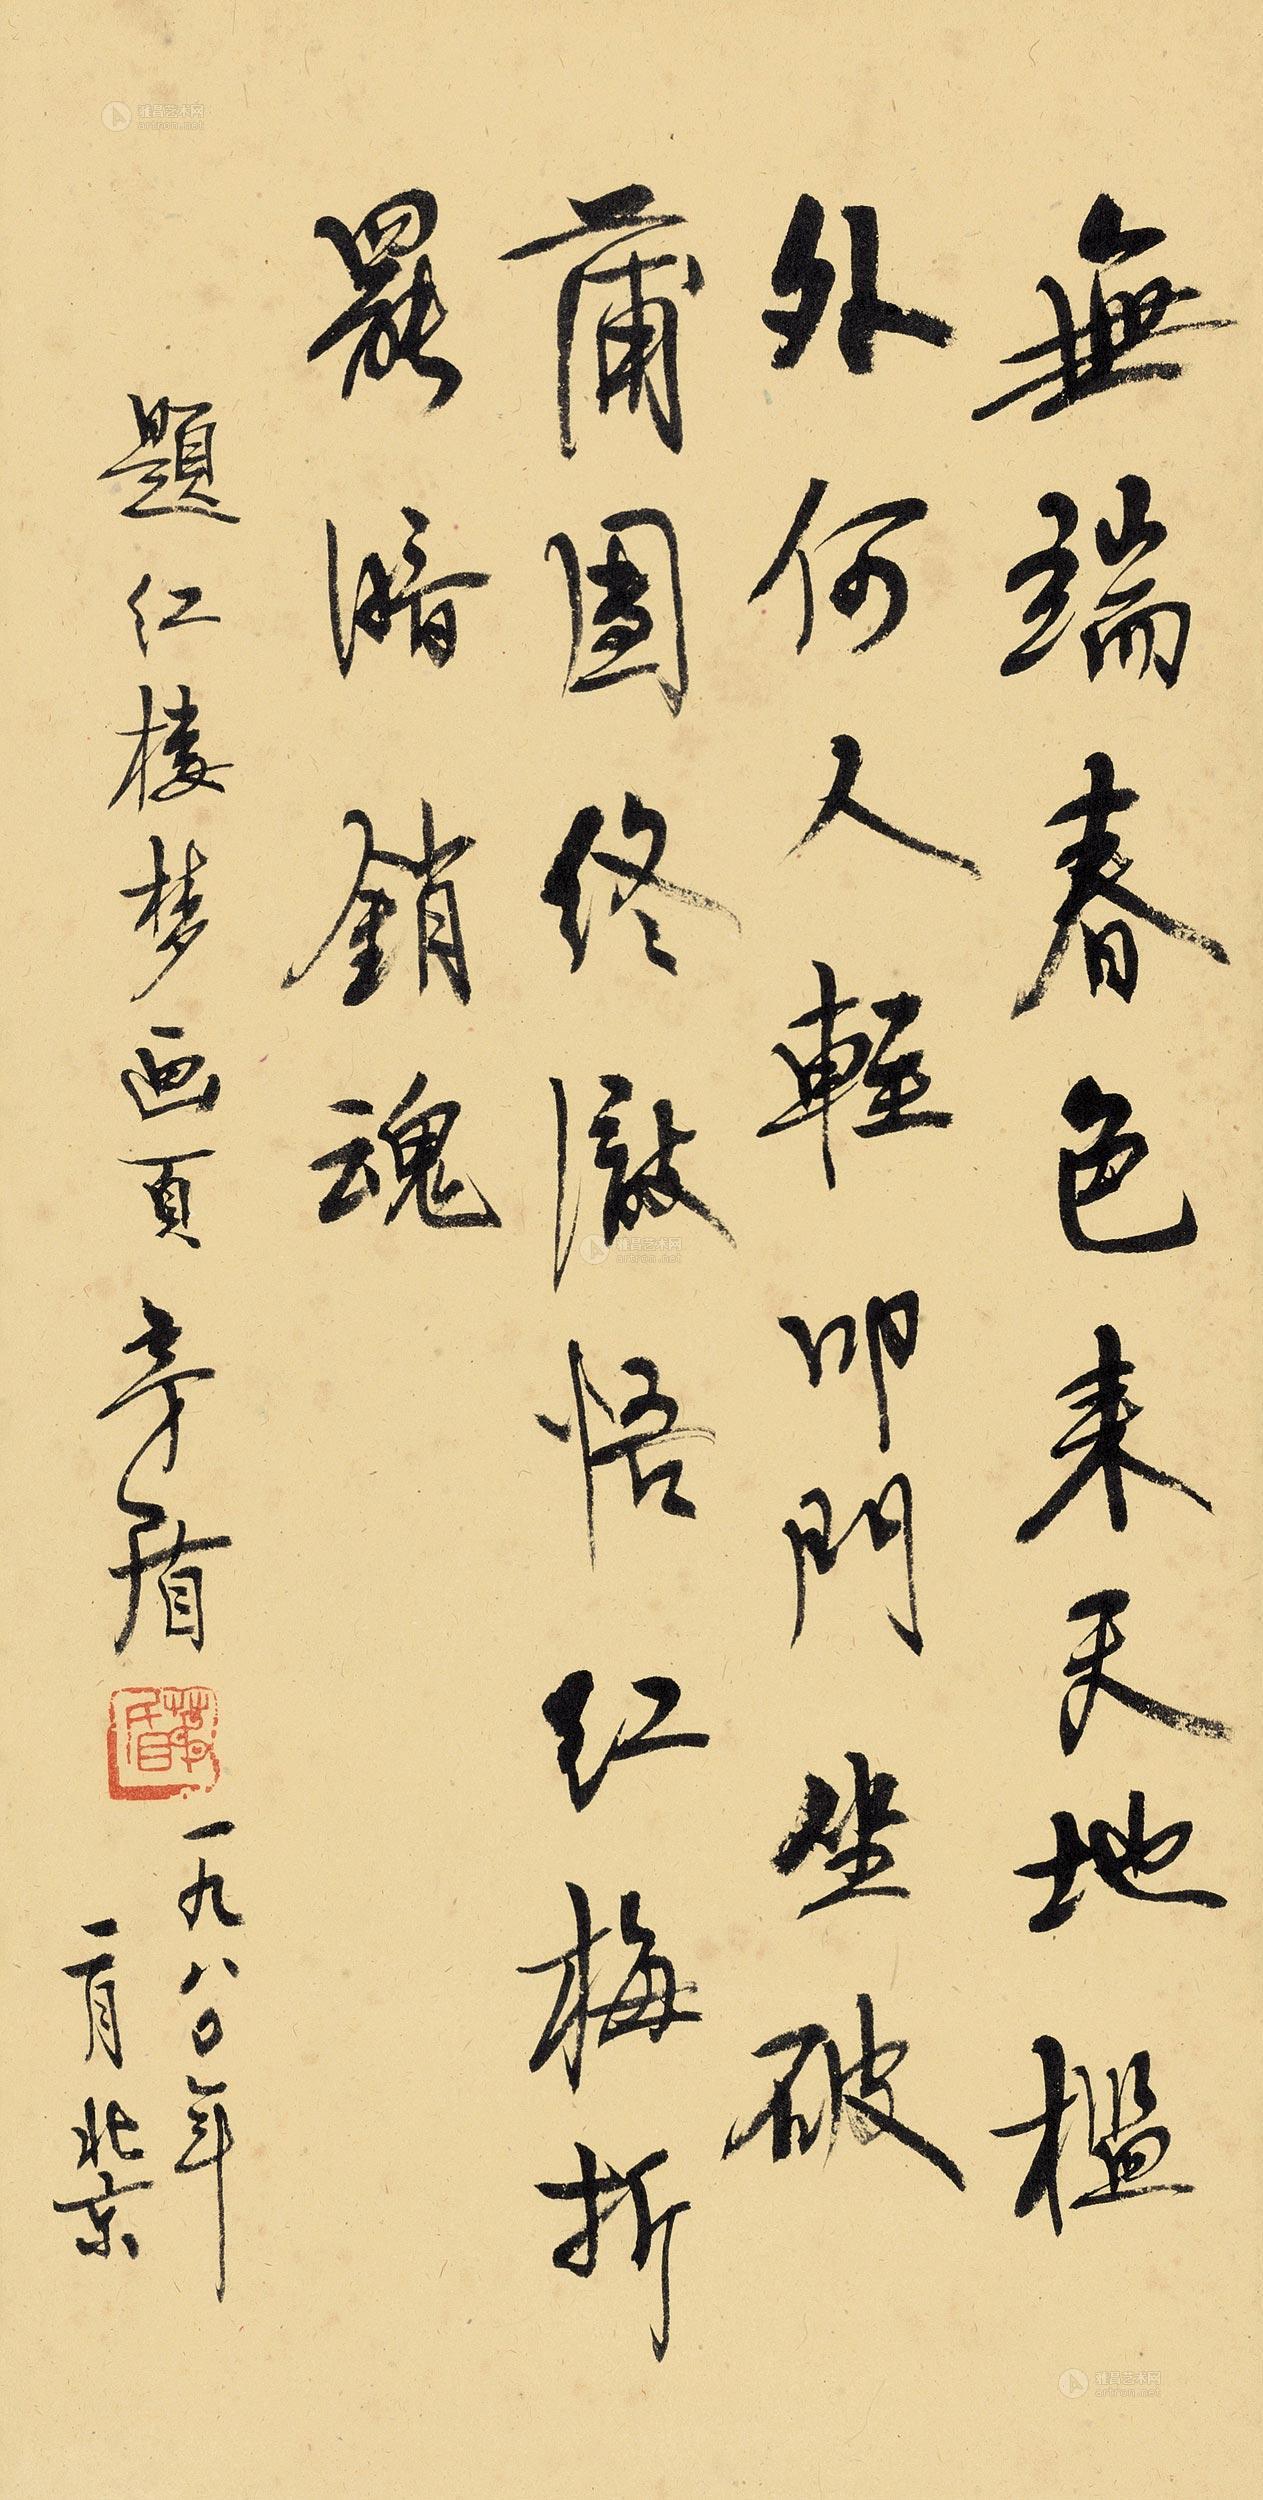 無端春色来天地檻
外何人輕叩門坐破
蒲團终澈悟红梅折
罷暗銷魂
題红楼梦画頁 茅盾
茅盾
一九八〇年
一月北京
雅昌艺术网
artron.net
雅昌艺术网
artron.net
雅昌艺术网
artron.net